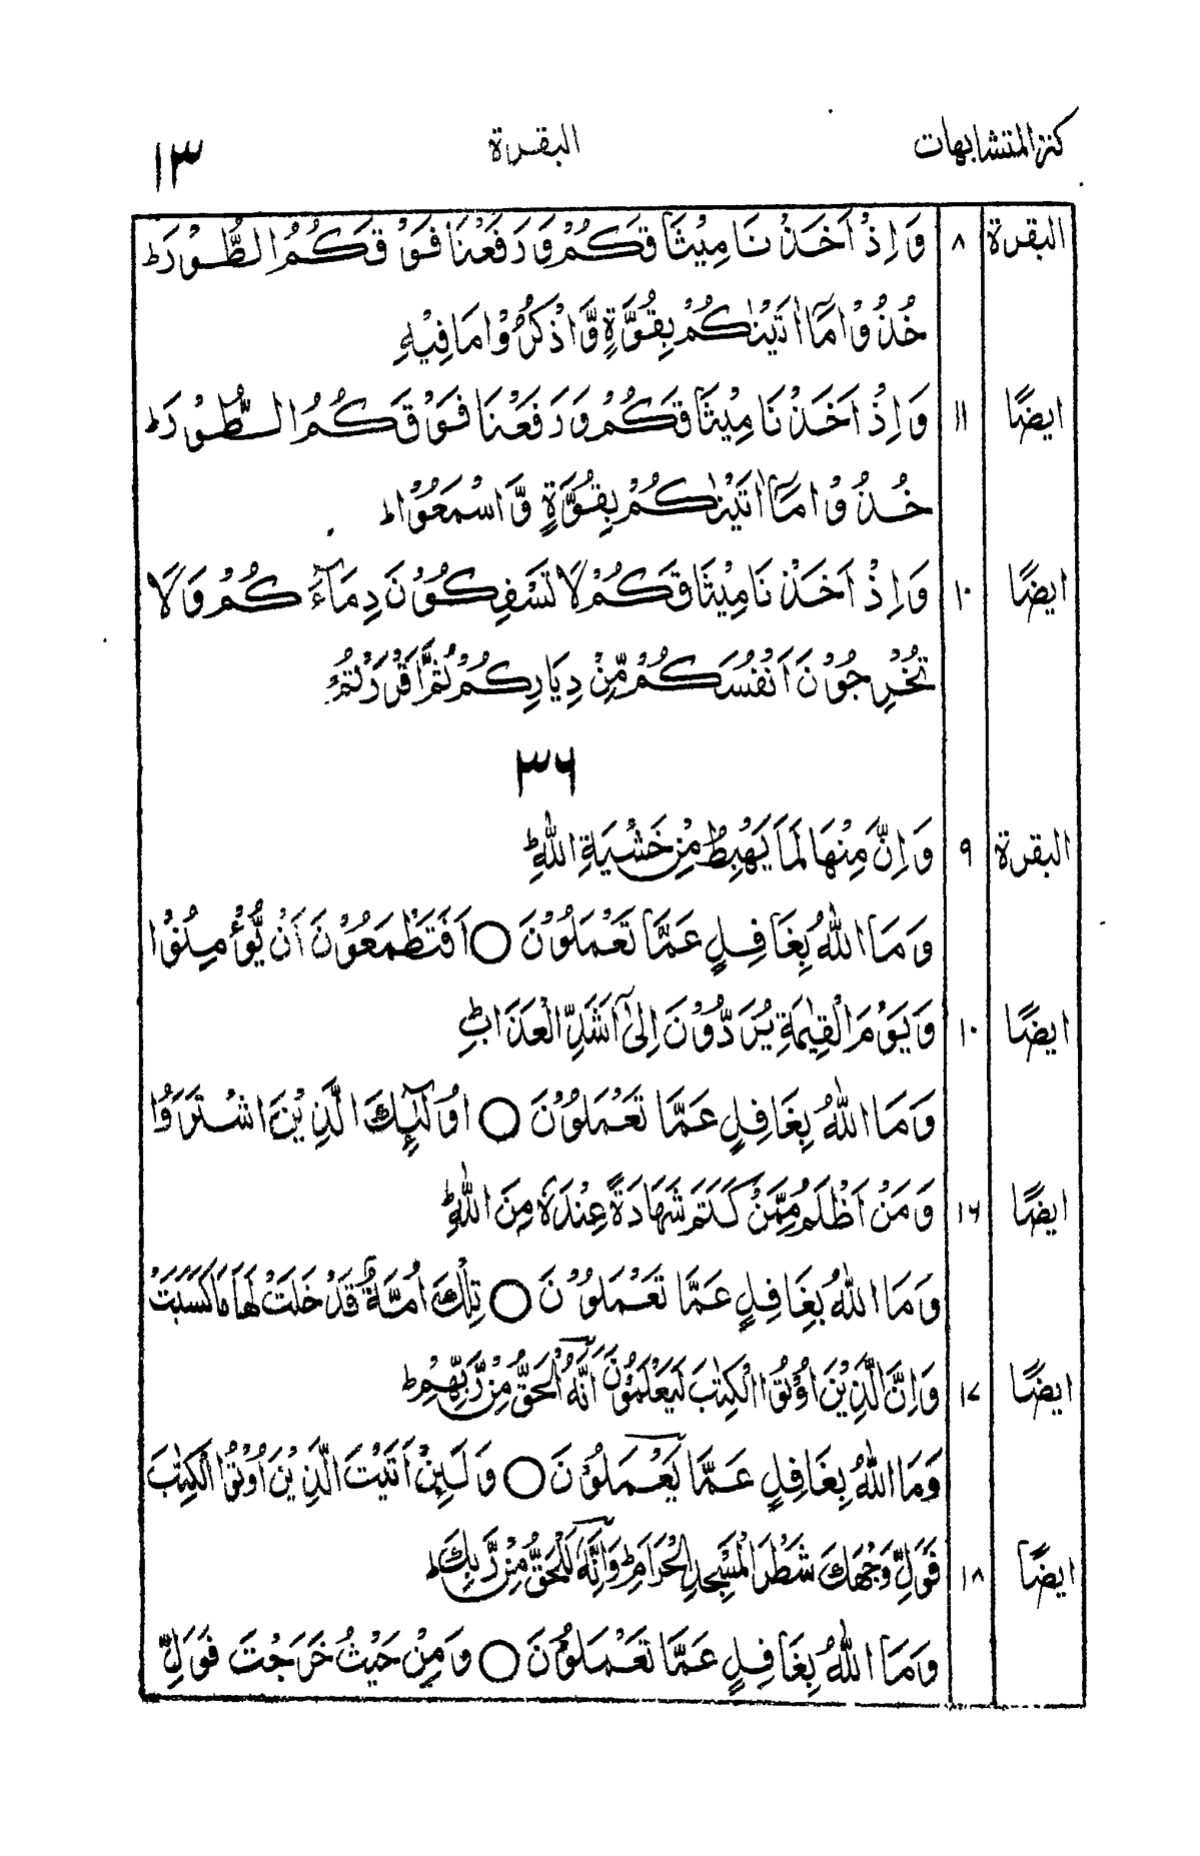 كنز المتشابهات البقرة ١٣
البقرة ٨ وَاِذْ اَخَذْنَا مِيْثَاقَكُمْ وَرَفَعْنَا فَوْقَكُمُ الطُّوْرَ ط
خُذُوْا مَآ اٰتَيْنٰكُمْ بِقُوَّةٍ وَّاذْكُرُوْا مَا فِيْهِ
ايضًا ١١ وَاِذْ اَخَذْنَا مِيْثَاقَكُمْ وَرَفَعْنَا فَوْقَكُمُ الطُّوْرَ ط
خُذُوْا مَآ اٰتَيْنٰكُمْ بِقُوَّةٍ وَّاسْمَعُوْا ط
ايضًا ١٠ وَاِذْ اَخَذْنَا مِيْثَاقَكُمْ لَا تَسْفِكُوْنَ دِمَآءَكُمْ وَلَا
تُخْرِجُوْنَ اَنْفُسَكُمْ مِّنْ دِيَارِكُمْ ثُمَّ اَقْرَرْتُمْ
٣٦
البقرة ٩ وَاِنَّ مِنْهَا لَمَا يَهْبِطُ مِنْ خَشْيَةِ اللّٰهِ ط
وَمَا اللّٰهُ بِغَافِلٍ عَمَّا تَعْمَلُوْنَ ○ اَفَتَطْمَعُوْنَ اَنْ يُّؤْمِنُوْا
ايضًا ١٠ وَيَوْمَ الْقِيٰمَةِ يُرَدُّوْنَ اِلٰٓى اَشَدِّ الْعَذَابِ ط
وَمَا اللّٰهُ بِغَافِلٍ عَمَّا تَعْمَلُوْنَ ○ اُولٰٓئِكَ الَّذِيْنَ اشْتَرَوُا
ايضًا ١٦ وَمَنْ اَظْلَمُ مِمَّنْ كَتَمَ شَهَادَةً عِنْدَهٗ مِنَ اللّٰهِ ط
وَمَا اللّٰهُ بِغَافِلٍ عَمَّا تَعْمَلُوْنَ ○ تِلْكَ اُمَّةٌ قَدْ خَلَتْ لَهَا مَا كَسَبَتْ
ايضًا ١٧ وَاِنَّ الَّذِيْنَ اُوْتُوا الْكِتٰبَ لَيَعْلَمُوْنَ اَنَّهُ الْحَقُّ مِنْ رَّبِّهِمْ ط
وَمَا اللّٰهُ بِغَافِلٍ عَمَّا يَعْمَلُوْنَ ○ وَلَئِنْ اَتَيْتَ الَّذِيْنَ اُوْتُوا الْكِتٰبَ
ايضًا ١٨ فَوَلِّ وَجْهَكَ شَطْرَ الْمَسْجِدِ الْحَرَامِ ط وَاِنَّهٗ لَلْحَقُّ مِنْ رَّبِّكَ ط
وَمَا اللّٰهُ بِغَافِلٍ عَمَّا تَعْمَلُوْنَ ○ وَمِنْ حَيْثُ خَرَجْتَ فَوَلِّ